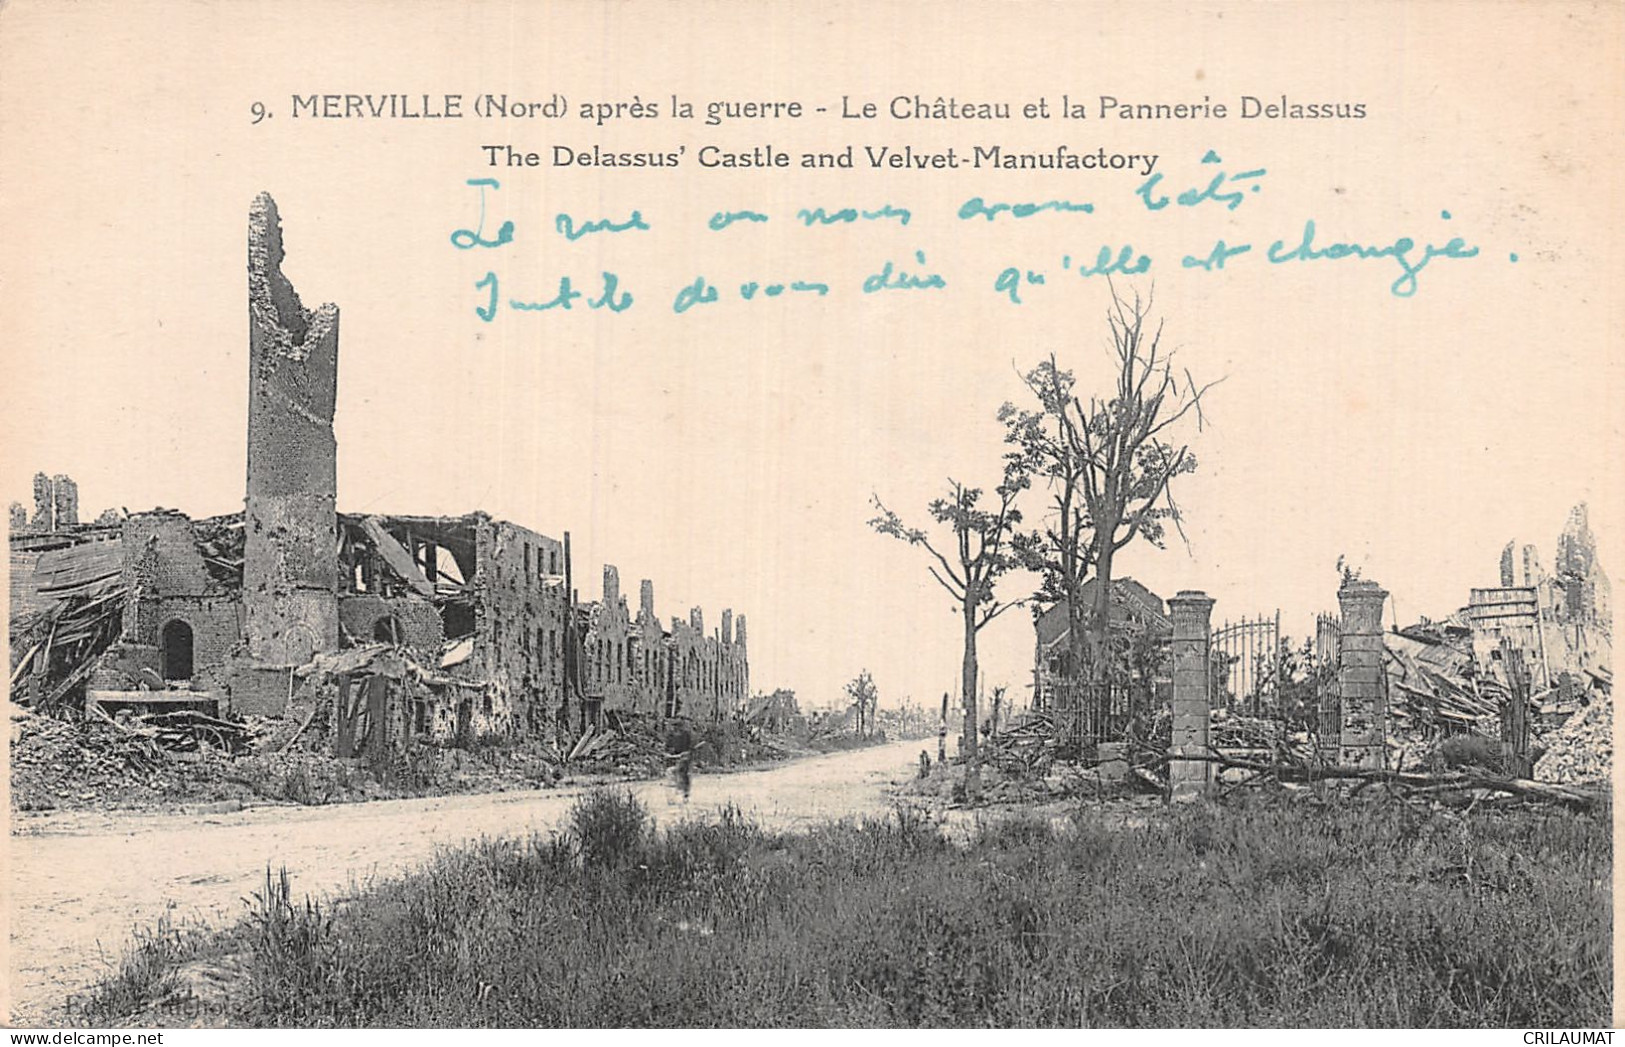 9. MERVILLE (Nord) après la guerre - Le Château et la Pannerie Delassus
The Delassus' Castle and Velvet-Manufactory
La rue où nous avons bâti.
Inutile de vous dire qu'elle est changée.
CRILAUMAT